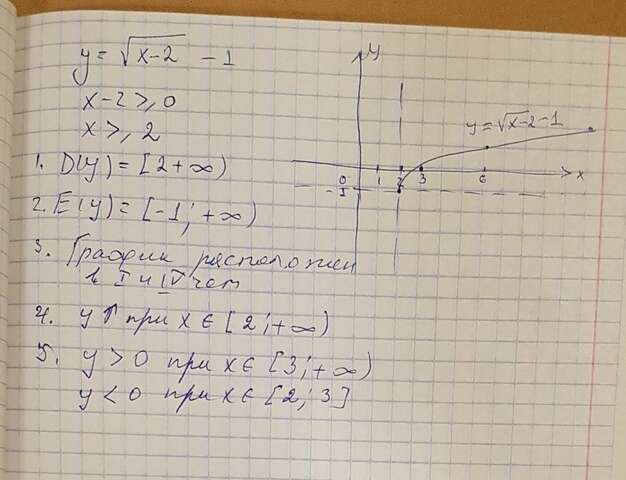 y = √x-2 - 1
x-2 ⩾ 0
x ⩾ 2
1. D(y) = [2 + ∞)
2. E(y) = [-1; + ∞)
3. График расположен
в I и IV чет
4. y↑ при x ∈ [2; + ∞)
5. y > 0 при x ∈ [3; + ∞)
y < 0 при x ∈ [2; 3]
y
y = √x-2 - 1
0 1 2 3 6 x
-1